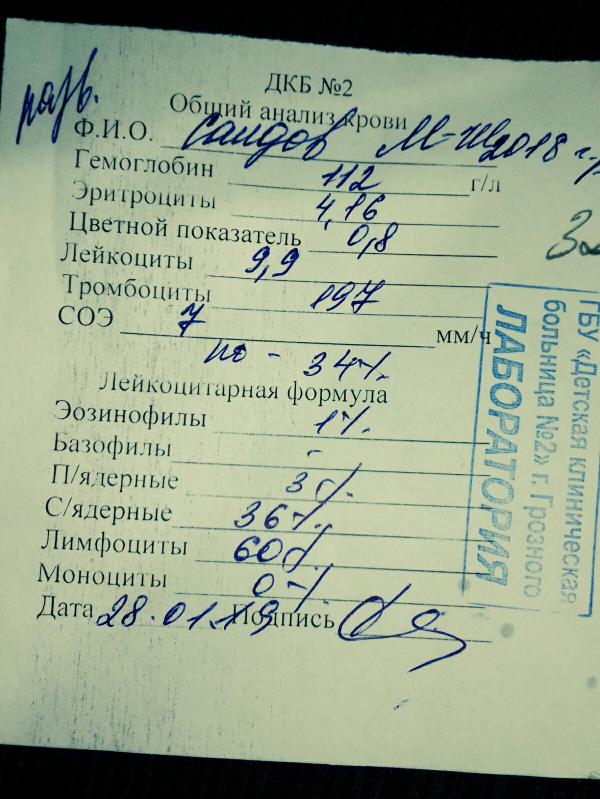 ДКБ №2
разв.
Общий анализ крови
Ф.И.О. Саидов М-Ш 2018 г.р
Гемоглобин 112 г/л
Эритроциты 4,16
Цветной показатель 0,8
Лейкоциты 9,9
Тромбоциты 197
СОЭ 7 мм/ч
34%
Лейкоцитарная формула
Эозинофилы 1%
Базофилы -
П/ядерные 3%
С/ядерные 36%
Лимфоциты 60%
Моноциты 0%
Дата 28.01.19 Подпись
ГБУ «Детская клиническая
больница №2» г. Грозного
ЛАБОРАТОРИЯ